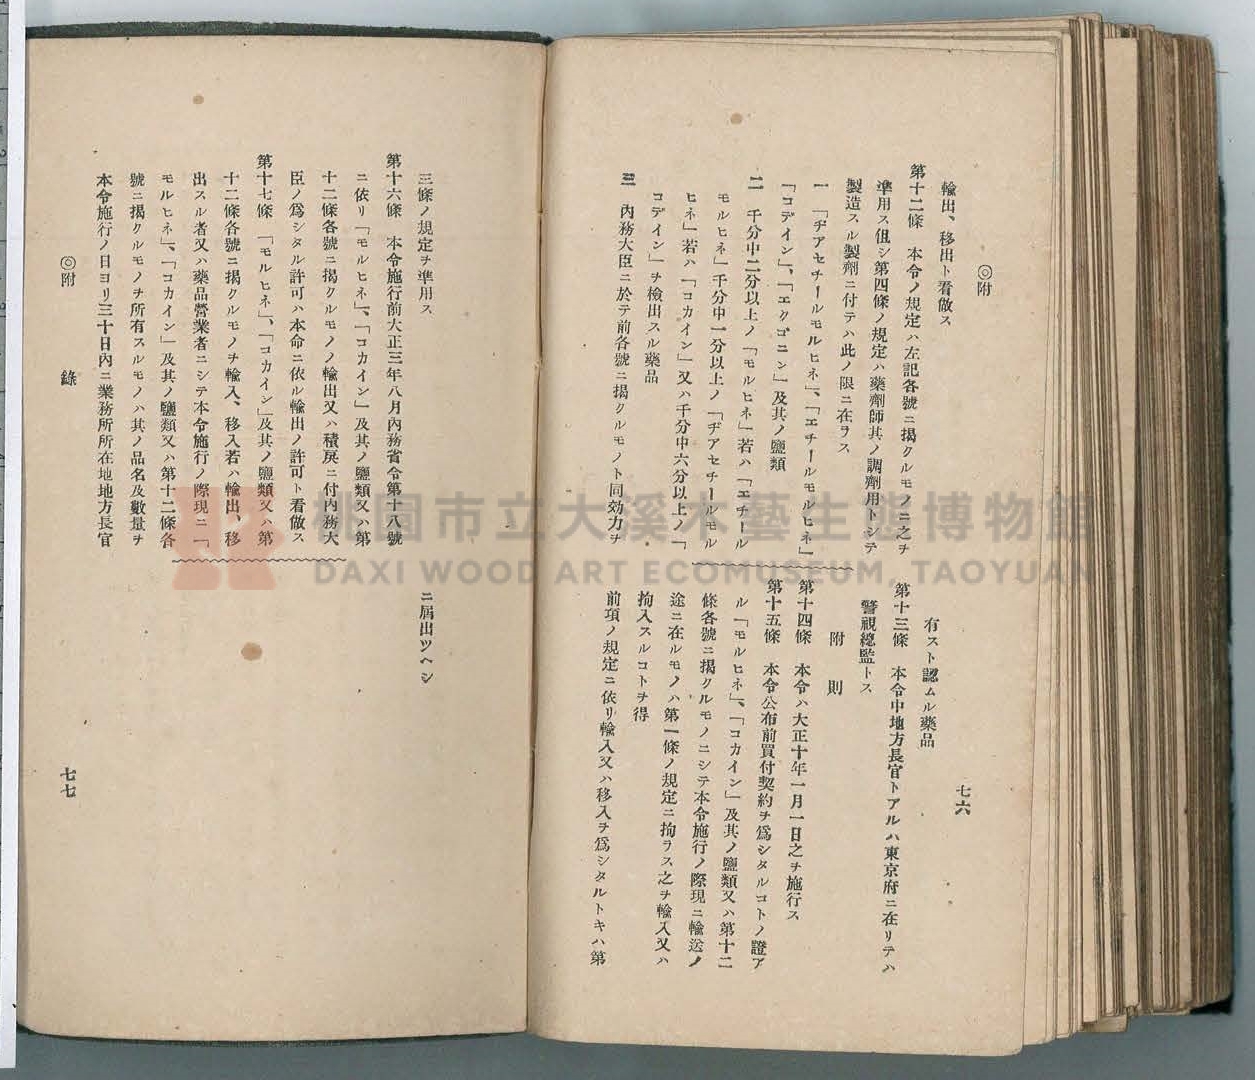 ◎附
七六
輸出、移出ト看做ス
第十二條　本令ノ規定ハ左記各號ニ揭クルモノニ之ヲ
準用ス但シ第四條ノ規定ハ藥劑師其ノ調劑用トシテ
製造スル製劑ニ付テハ此ノ限ニ在ラス
一　「ヂアセチールモルヒネ」、「エチールモルヒネ」
「コデイン」、「エクゴニン」及其ノ鹽類
二　千分中二分以上ノ「モルヒネ」若ハ「エチール
モルヒネ」千分中一分以上ノ「ヂアセチールモル
ヒネ」若ハ「コカイン」又ハ千分中六分以上ノ「
コデイン」ヲ檢出スル藥品
三　內務大臣ニ於テ前各號ニ揭クルモノト同効力ヲ
有スト認ムル藥品
第十三條　本令中地方長官トアルハ東京府ニ在リテハ
警視總監トス
附　則
第十四條　本令ハ大正十年一月一日之ヲ施行ス
第十五條　本令公布前買付契約ヲ爲シタルコトノ證ア
ル「モルヒネ」、「コカイン」及其ノ鹽類又ハ第十二
條各號ニ揭クルモノニシテ本令施行ノ際現ニ輸送ノ
途ニ在ルモノハ第一條ノ規定ニ拘ラス之ヲ輸入又ハ
拘入スルコトヲ得
前項ノ規定ニ依リ輸入又ハ移入ヲ爲シタルトキハ第
三條ノ規定ヲ準用ス
第十六條　本令施行前大正三年八月內務省令第十八號
ニ依リ「モルヒネ」、「コカイン」及其ノ鹽類又ハ第
十二條各號ニ揭クルモノノ輸出又ハ積戾ニ付內務大
臣ノ爲シタル許可ハ本命ニ依ル輸出ノ許可ト看做ス
第十七條　「モルヒネ」、「コカイン」及其ノ鹽類又ハ第
十二條各號ニ揭クルモノヲ輸入、移入若ハ輸出、移
出スル者又ハ藥品營業者ニシテ本令施行ノ際現ニ「
モルヒネ」、「コカイン」及其ノ鹽類又ハ第十二條各
號ニ揭クルモノヲ所有スルモノハ其ノ品名及數量ヲ
本令施行ノ日ヨリ三十日內ニ業務所所在地地方長官
ニ屆出ツヘシ
◎附　錄
七七
桃園市立大溪木藝生態博物館
DAXI WOOD ART ECOMUSEUM, TAOYUAN